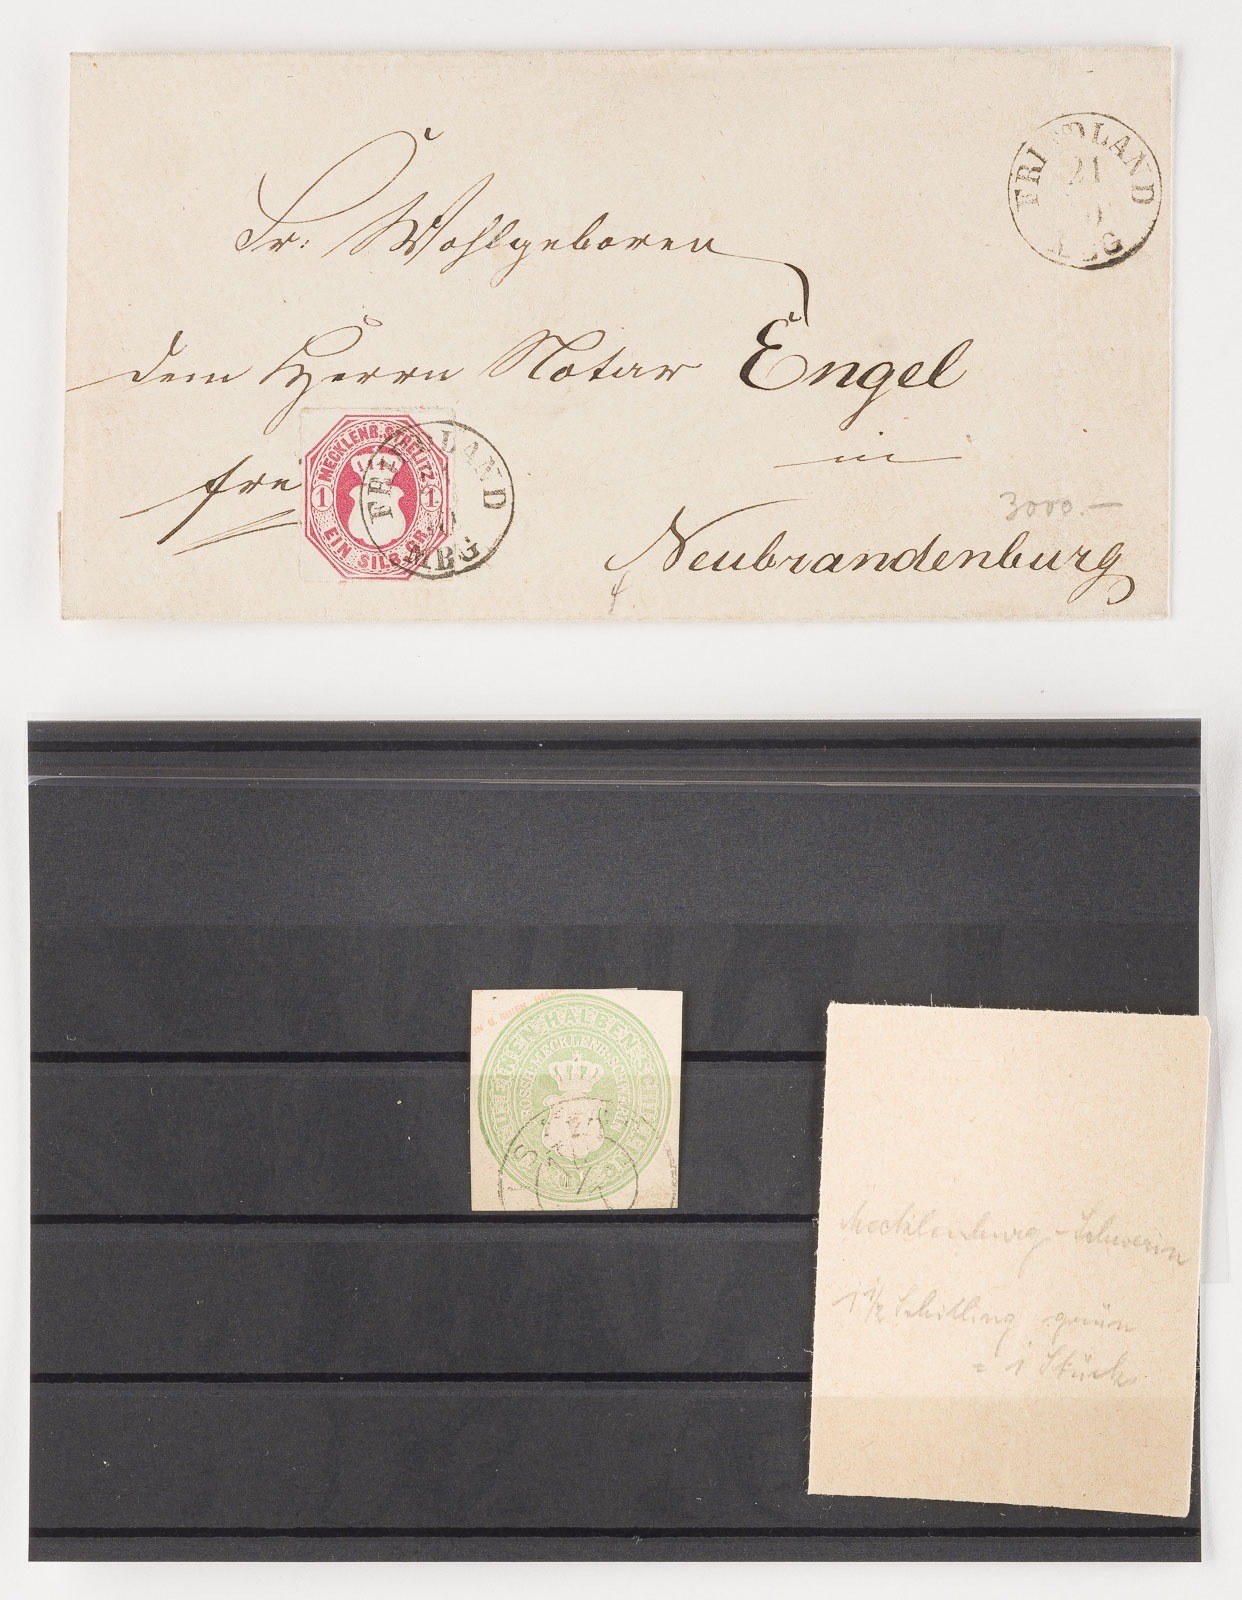 Sr: Wohlgeboren
dem Herrn Notar Engel
in
Neubrandenburg
frei
3000.-
FRIEDLAND
21
MBG
MECKLENB. STRELITZ
1 1
EIN SILB. GR.
FRIEDLAND
MBG
EINEN HALBEN SCHILLING
GROSSH. MECKLENB. SCHWERIN
Mecklenburg-Schwerin
1 1/2 Schilling grün
= 1 Stück